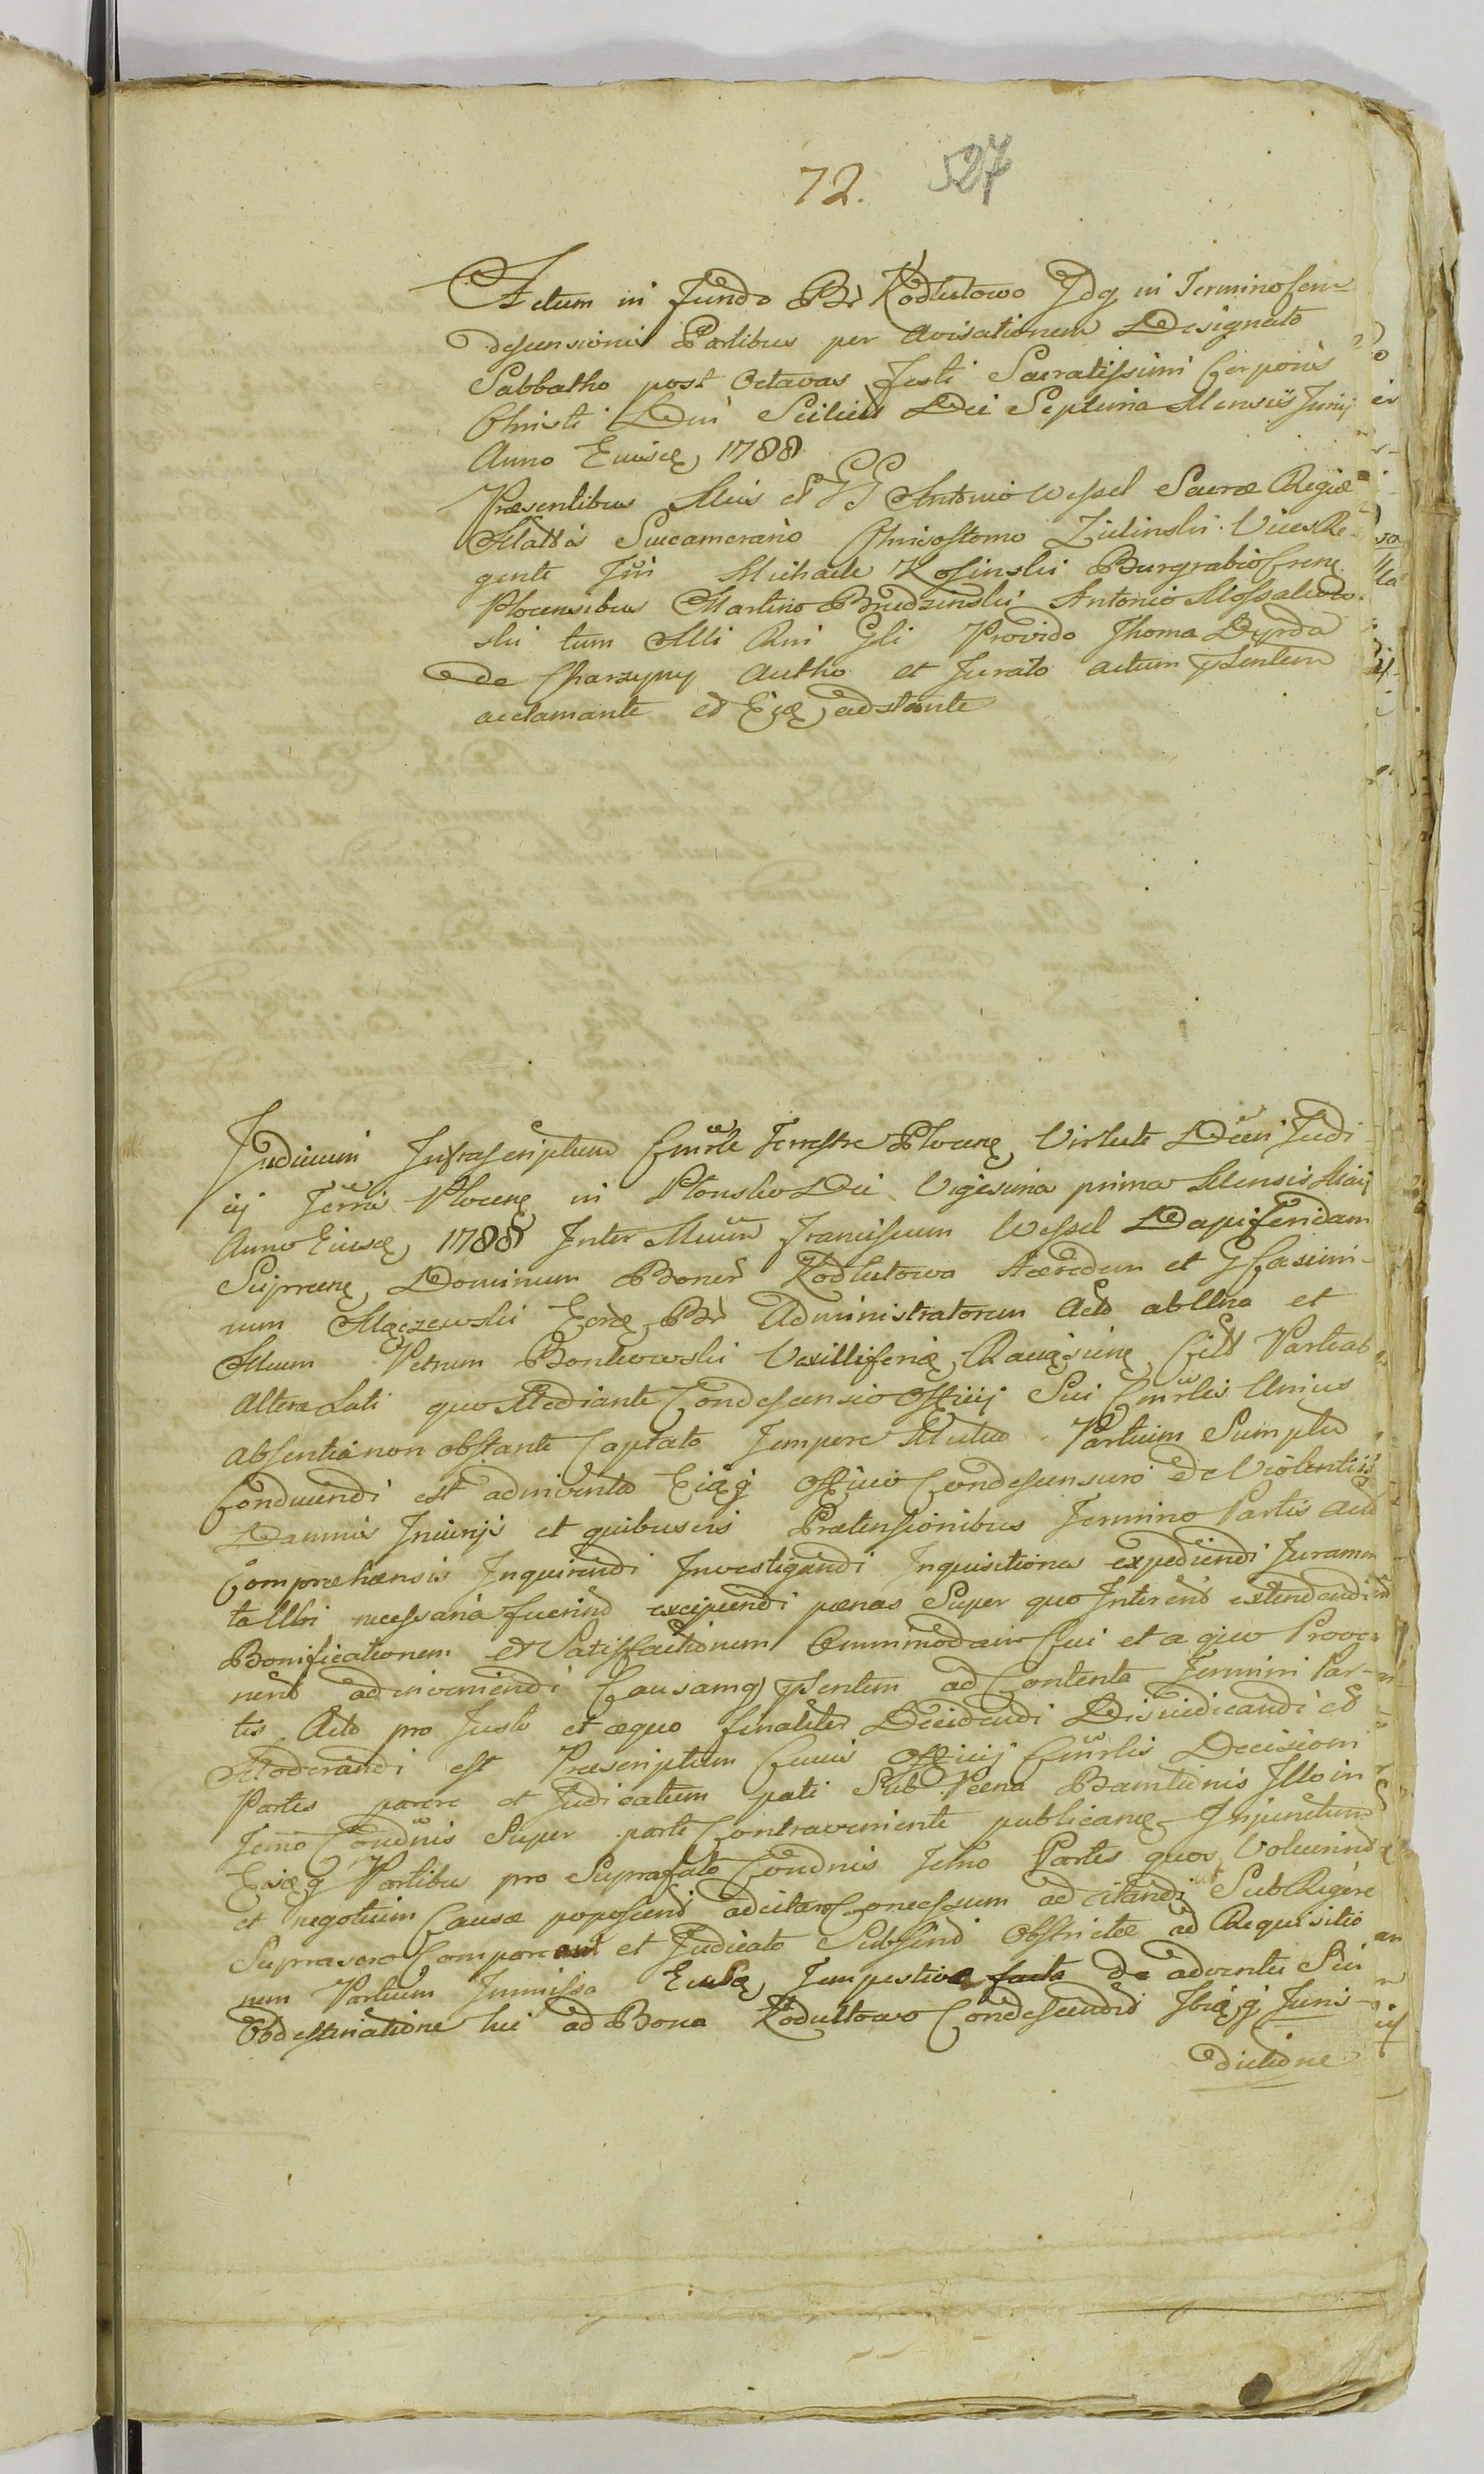 72. 527
Actum in fundo Br Kodlutowo Idq in Termino Con
descensionis Partibus per Avisationem Designato
Sabbatho post Octavas Festi Sacratissimi Corporis
Christi Dni Scilicet Die Septima Mensis Junij
Anno Eiusq 1788
Præsentibus Meis et GG Antonio Wessel Sacræ Regiæ
Mattis Succamerario Chrisostomo Zielinski Vices Re-
gente Michaele Kosinski Burgrabio
Plocensibus Martino Brudzinski Antonio Mossakow
ski tum Mli Rni Gli Provido Thoma Dyrda
de Charzyny Autho et Jurato actum pntem
acclamante et Eiq adstante
Judicium Infrascriptum Cmrle Terrestre Plocens Virtute Dcri Judi
cij Terris Plocens in Plonsko Die Vigesima prima Mensis Maij
Anno Eiusq 1788 Inter Mcum Franciscum Wessel Dapiferidam
Siprcens Dominum Bonor Kodlutowa Hæredem et G Casimi-
rum Mączewski Eorq Br Administratorem Act ab Una et
Mcum Petrum Bonkowski Vexilliferiq Ravæ Cit Parte ab
altera Lati quo Mediante Condescensio Officij Sui Cmrlis Unius
absentia non obstante Captato Tempore Mutuo Partium Sumptu
Conducendi est adinventa Eiqq Officio Condescensuro de Violentiis
Damnis Iniurijs et quibusvis Prætensionibus Termino Partis Act
Compræhensis Inquirendi Investigandi Inquisitiones expediendi Juramen
ta Ubi necessaria fuerint excipiendi pænas Super quo Intererit extendendi
Bonificationem et Satisfactionem Omnimodam Cui et a quo Prove
nerit adinveniendi Causamq pntem ad Contenta Termini Par-
tis Act pro Justo et æquo finaliter Decidendi Dijudicandi et
Moderandi est Præscriptum Cuius Officij Cmrlis Decisioni
Partes parere et Judicatum pati Sub Pæna Bannitionis Illo in
Temo Condnis Super parte Contraveniente publicans Injunctum
Eisqq Partibus pro Suprafato Condnis Temo Partes quos Voluerint
et negotium Causæ poposcerit adcitare Concessum adcitandi ut Sub Rigore
Suprascro Compareant et Judicato Subsint Obstrictæ ad Requisitio
nem Partium Immissa Eisq Tempestiva facta de adventu Sui
Obdestinatione hic ad Bona Kodultowo Condescendit Ibiqq Juris-
dictione